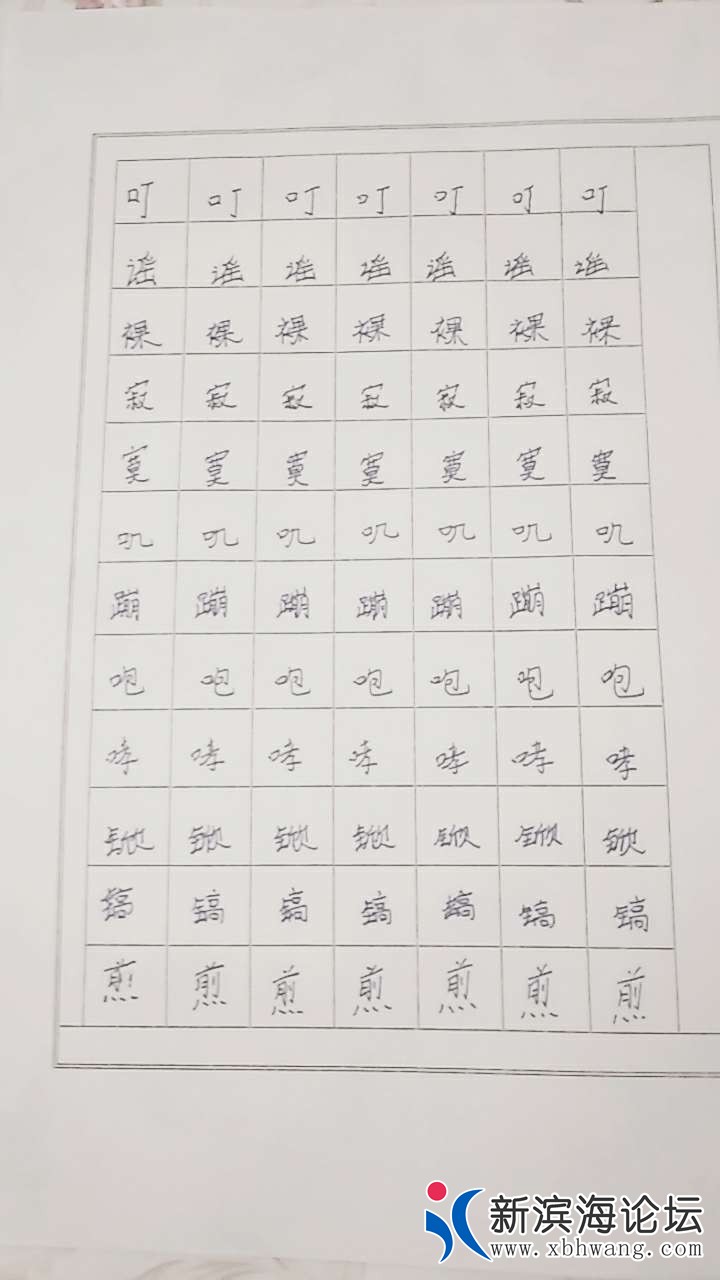 叮 叮 叮 叮 叮 叮 叮
谣 谣 谣 谣 谣 谣 谣
裸 裸 裸 裸 裸 裸 裸
寂 寂 寂 寂 寂 寂 寂
寞 寞 寞 寞 寞 寞 寞
叽 叽 叽 叽 叽 叽 叽
蹦 蹦 蹦 蹦 蹦 蹦 蹦
咆 咆 咆 咆 咆 咆 咆
哮 哮 哮 哮 哮 哮 哮
锨 锨 锨 锨 锨 锨 锨
镐 镐 镐 镐 镐 镐 镐
煎 煎 煎 煎 煎 煎 煎
新滨海论坛
www.xbhwang.com